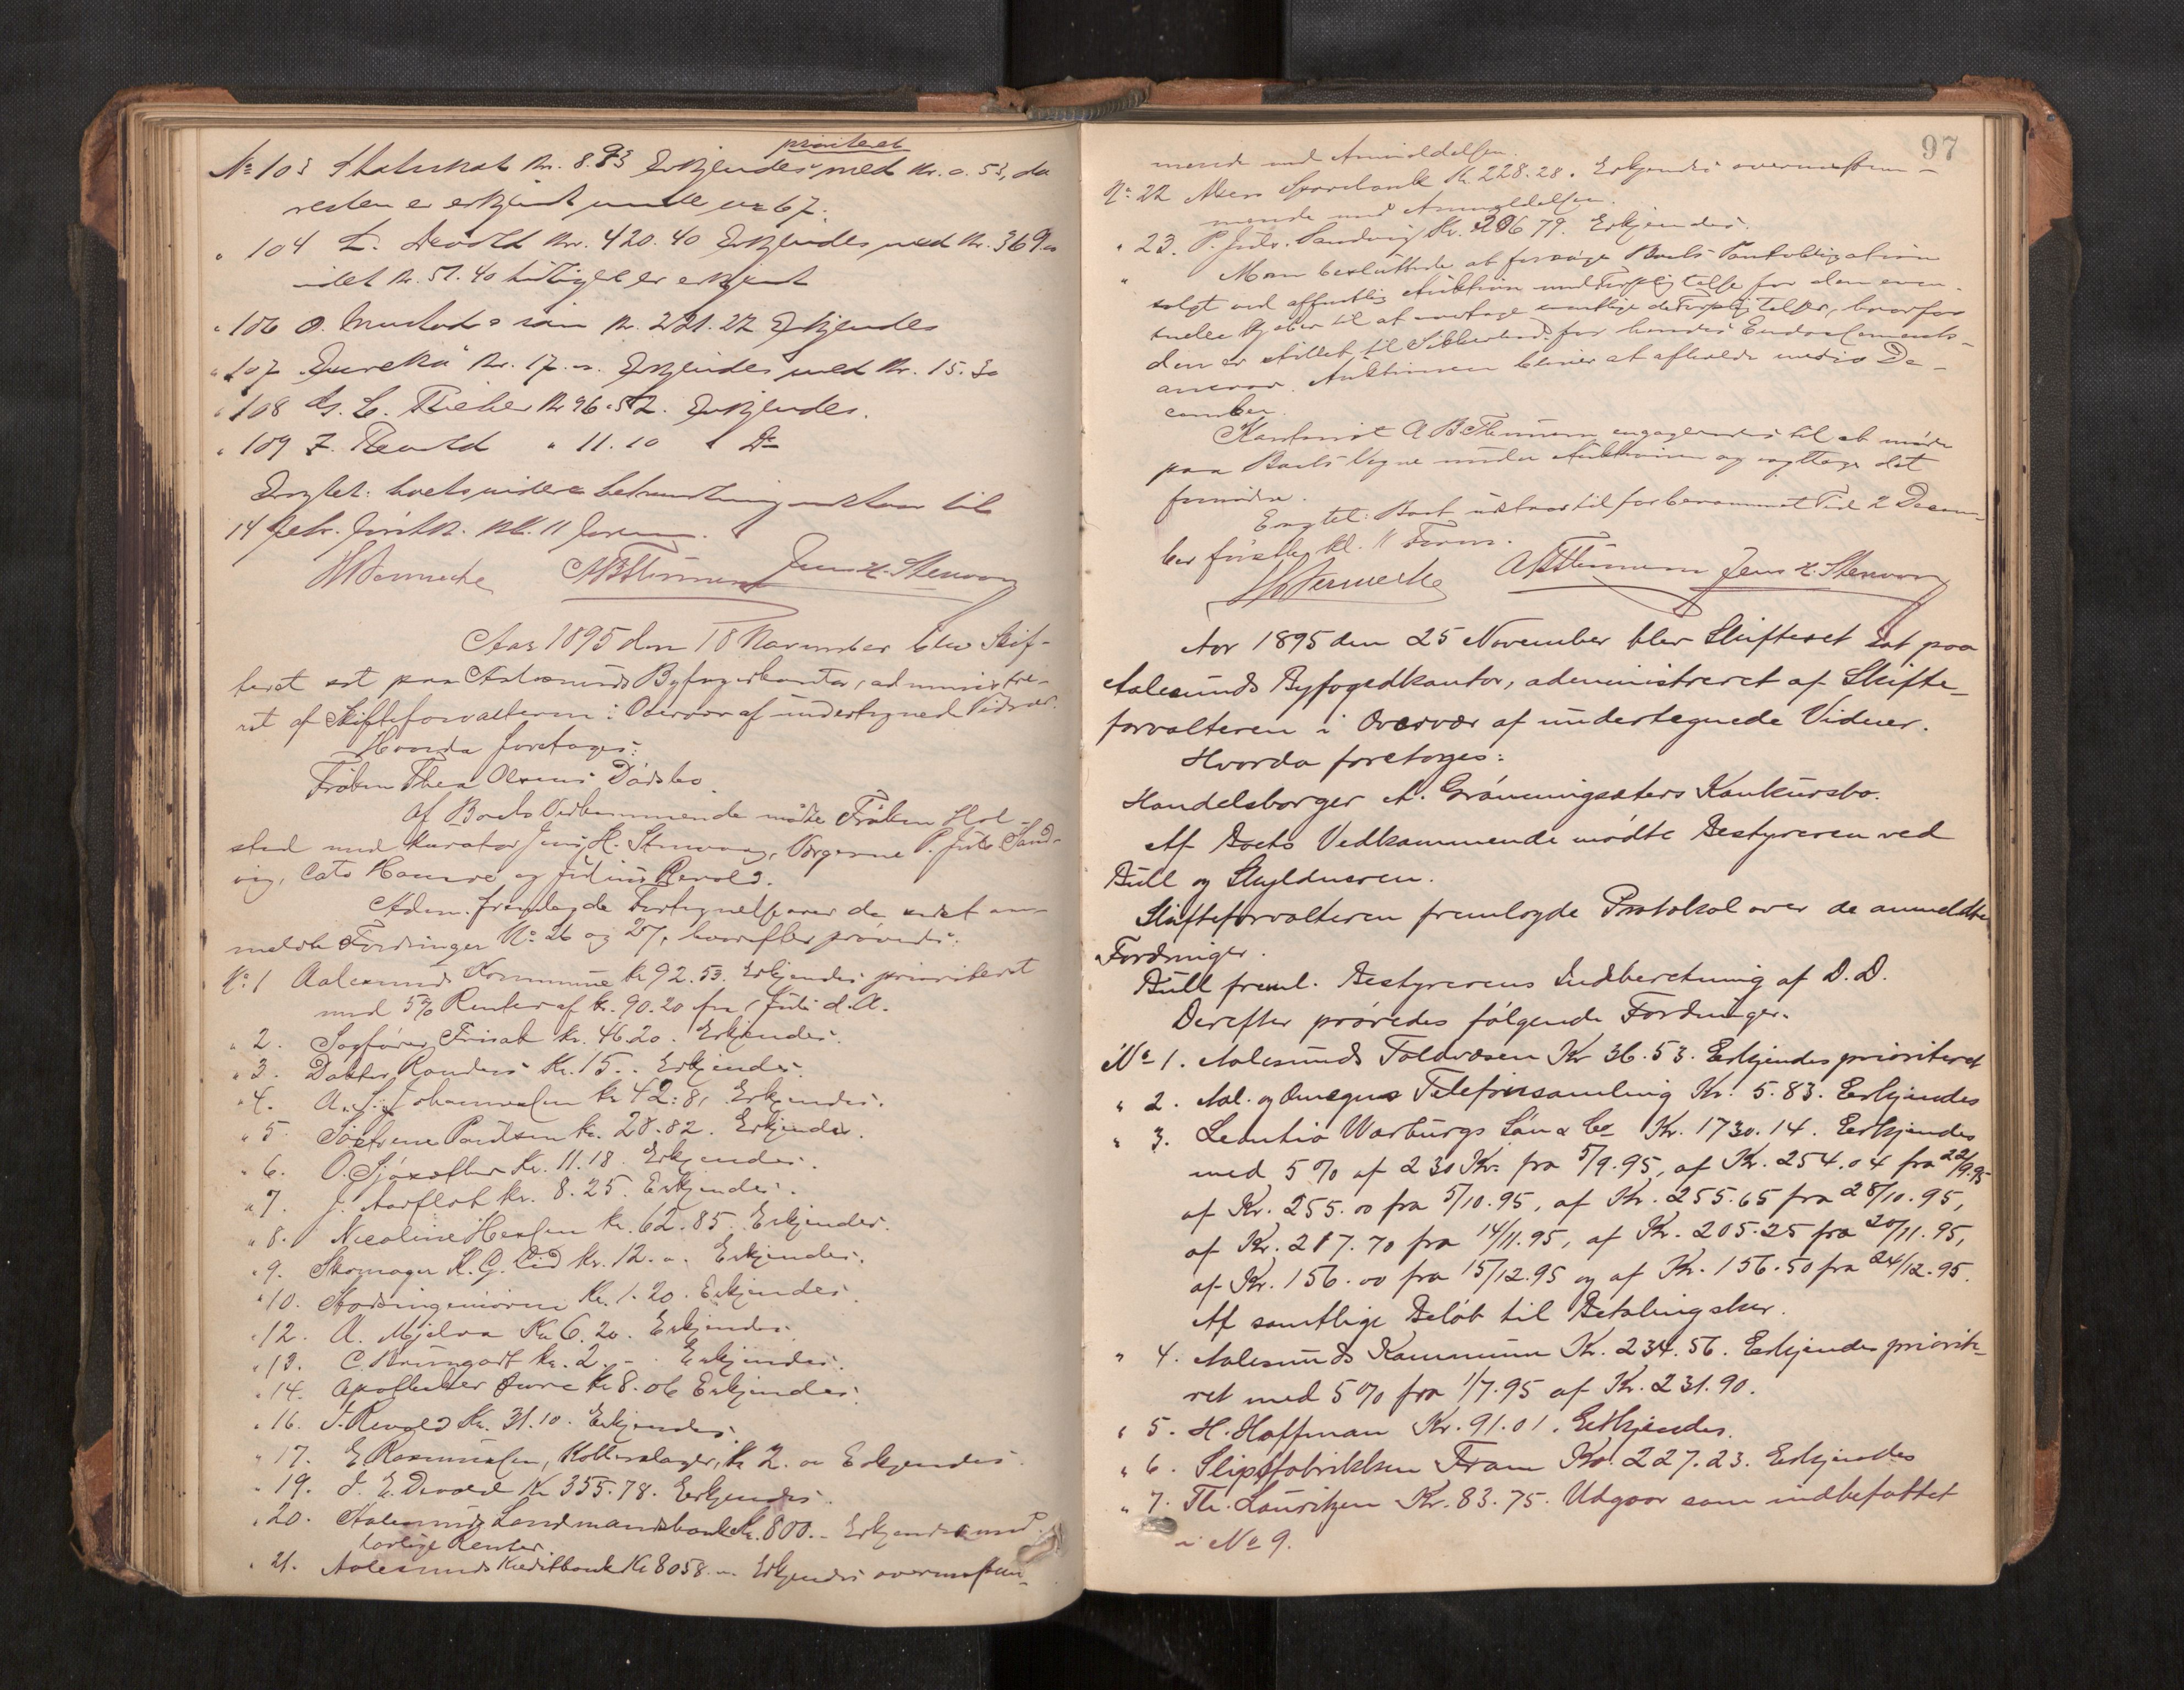 prioriteret
No 103 Statsskat Kr. 8.93 Erkjendes med Kr. 0.53, da
resten er erkjendt under no 67.
" 104 L. Devold Kr. 420.40 Erkjendes med Kr. 369.00
idet Kr. 51.40 tidligere er erkjendt
" 106 O. Mustad & søn Kr. 221.22 Erkjendes
" 107 "Eureka" Kr. 17.00. Erkjendes med Kr. 15.30
" 108 G. C. Rieber Kr 96.52. Erkjendes.
" 109 J. Revold " 11.10 Do
Eragtet: boets videre behandling udstaar til
14 Febr. førstk. kl. 11 Form.
A B Thinmann Jens H. Stenvaag
Aar 1895 den 18 November blev Skif-
teret sat paa Aalesunds Byfogedkontor, administre-
ret af Skifteforvalteren i Overvær af undertegnede Vidner.
Hvorda foretoges:
Frøken Thea Olsens Dødsbo
Af Boets Vedkommende mødte Frøken Hol-
stad med Kurator Jens H. Stenvaag, Værgerne P. Juls Sand-
vig, Cato Hamre og Julius Revold.
Adm. fremlagde Fortegnelse over de sidst an-
meldte Fordringer No 26 og 27, hvorefter prøvedes:
No 1 Aalesunds Kommune Kr 92.53. Erkjendes prioriteret
med 5% Renter af Kr. 90.20 fra 1 Juli d. A.
" 2. Sagfører Frisak Kr. 46.20. Erkjendes.
" 3. Doktor Randers Kr. 15.. Erkjendes.
" 4. A. J. Johannesen Kr 42.81 Erkjendes.
" 5. Søstrene Poulsen Kr. 28.82. Erkjendes.
" 6. O. Sjøxelber Kr. 11.18. Erkjendes.
" 7. J. Aarflot Kr. 8.25. Erkjendes.
" 8. Nicoline Hessen Kr. 62.85. Erkjendes.
" 9. Skomager K. G. Eid Kr. 12.00. Erkjendes.
" 10. Stadsingeniøren Kr. 1.20. Erkjendes.
" 12. A. Mjelva Kr 6.20. Erkjendes.
" 13. C. Brungodt Kr. 2.-. Erkjendes.
" 14. Apotheker Aure Kr 8.06 Erkjendes.
" 16. J. Revold Kr. 31.10. Erkjendes.
" 17. E Rasmussen, Kobberslager, Kr 2.00 Erkjendes.
" 19. J. E. Devold Kr 355.78. Erkjendes.
" 20. Aalesunds Landmandsbank Kr. 800.- Erkjendes med
lovlige Renter
" 21. Aalesunds Kreditbank Kr 8058.00. Erkjendes overensstem-
97
mende med Anmeldelsen.
No 22 Akers Sparebank Kr 228.28. Erkjendes overensstem-
mende med Anmeldelsen.
" 23. P. Juls. Sandvig Kr. 296 79. Erkjendes.
" Man besluttede at forsøge Boets Pantobligation
solgt ved offentlig Auktion mod Forpligtelse for den even-
tuelle Kjøber til at overtage samtlige de Forpligtelser, hvorfor
den er stillet til Sikkerhed for hendes Endossements-
ansvar. Auktionen bliver at afholde medio De-
cember.
Kontorist A B Thinmann engageredes til at møde
paa Boets Vegne under Auktionen og iagttage det
fornødne.
Eragtet: Boet udstaar til forberammet Tid 2 Decem-
ber førstk. kl. 11 Form.
A B Thinmann Jens H. Stenvaag
Aar 1895 den 25 November blev Skifteret sat paa
Aalesunds Byfogedkontor, administreret af Skifte-
forvalteren i Overvær af undertegnede Vidner.
Hvorda foretoges:
Handelsborger A. Grønningsæters Konkursbo.
Af Boets Vedkommende mødte Bestyreren ved
Bull og Skyldneren.
Skifteforvalteren fremlagde Protokol over de anmeldte
Fordringer.
Bull freml. Bestyrerens Indberetning af D. D.
Derefter prøvedes følgende Fordringer.
No 1. Aalesunds Toldvæsen Kr 36.53. Erkjendes prioriteret
" 2. Aal. og Omegns Telefonsamling Kr. 5.83. Erkjendes
" 3. Leontio Warburgs Søn & Co Kr. 1730.14. Erkjendes
med 5% af 230 Kr. fra 5/9.95, af Kr. 254.04 fra 22/9.95
af Kr. 255.00 fra 5/10.95, af Kr. 255.65 fra 28/10.95,
af Kr. 217.70 fra 14/11.95, af Kr. 205.25 fra 20/11.95,
af Kr. 156.00 fra 15/12.95 og af Kr. 156.50 fra 24/12.95.
Af samtlige Beløb til Betaling sker.
" 4. Aalesunds Kommune Kr. 234.56. Erkjendes priorite-
ret med 5% fra 1/7.95 af Kr. 231.90.
" 5. H. Hoffman Kr. 91.01. Erkjendes.
" 6. Slipsfabrikken Fram Kr. 227.23. Erkjendes
" 7. Th. Lauritzen Kr. 83.75. Udgaar som indbefattet
i No 9.